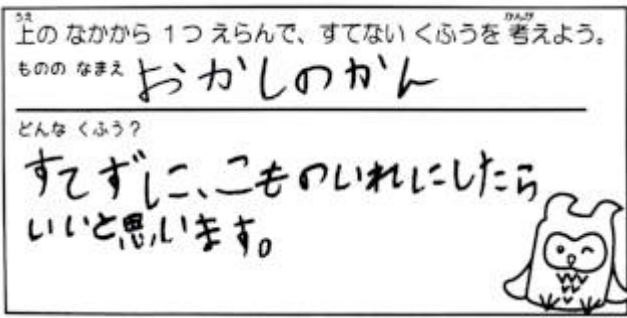 上の なかから 1つ えらんで、すてない くふうを 考えよう。
ものの なまえ おかしのかん
どんな くふう？
すてずに、こものいれにしたら
いいと思います。